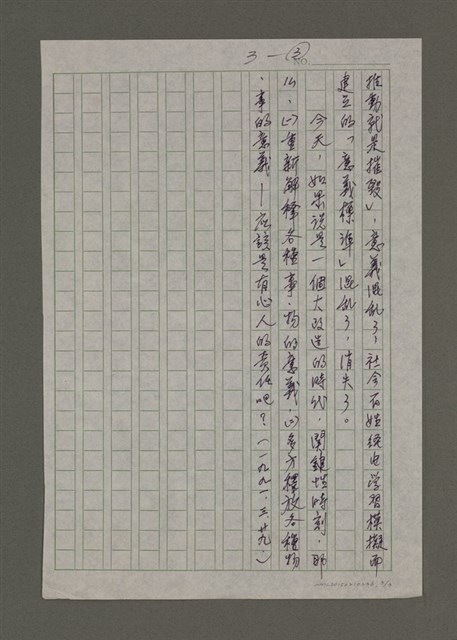 3－③
NO.
推動就是摧毀」，意義混亂了，社会百姓經由学習模擬而
建立的「意義標準」混乱了，消失了。
今天，如果说是一個大改造的時代，関鍵性時刻，那
么，(一)重新解釋各種事、物的意義，(二)多方釋放各種物
、事的意義－应該是有心人的責任吧？（一九九一．三．廿九．）